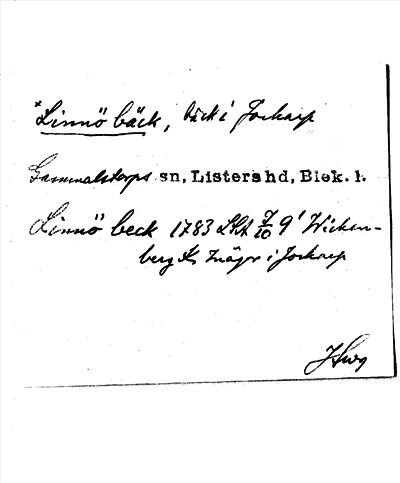 *Linnö bäck, bäck i Jockarp
Gammalstorps sn, Listers hd, Blek. l.
Linnö beck 1783 LSA 7/10 9' Wicken-
berg Ks äger i Jockarp